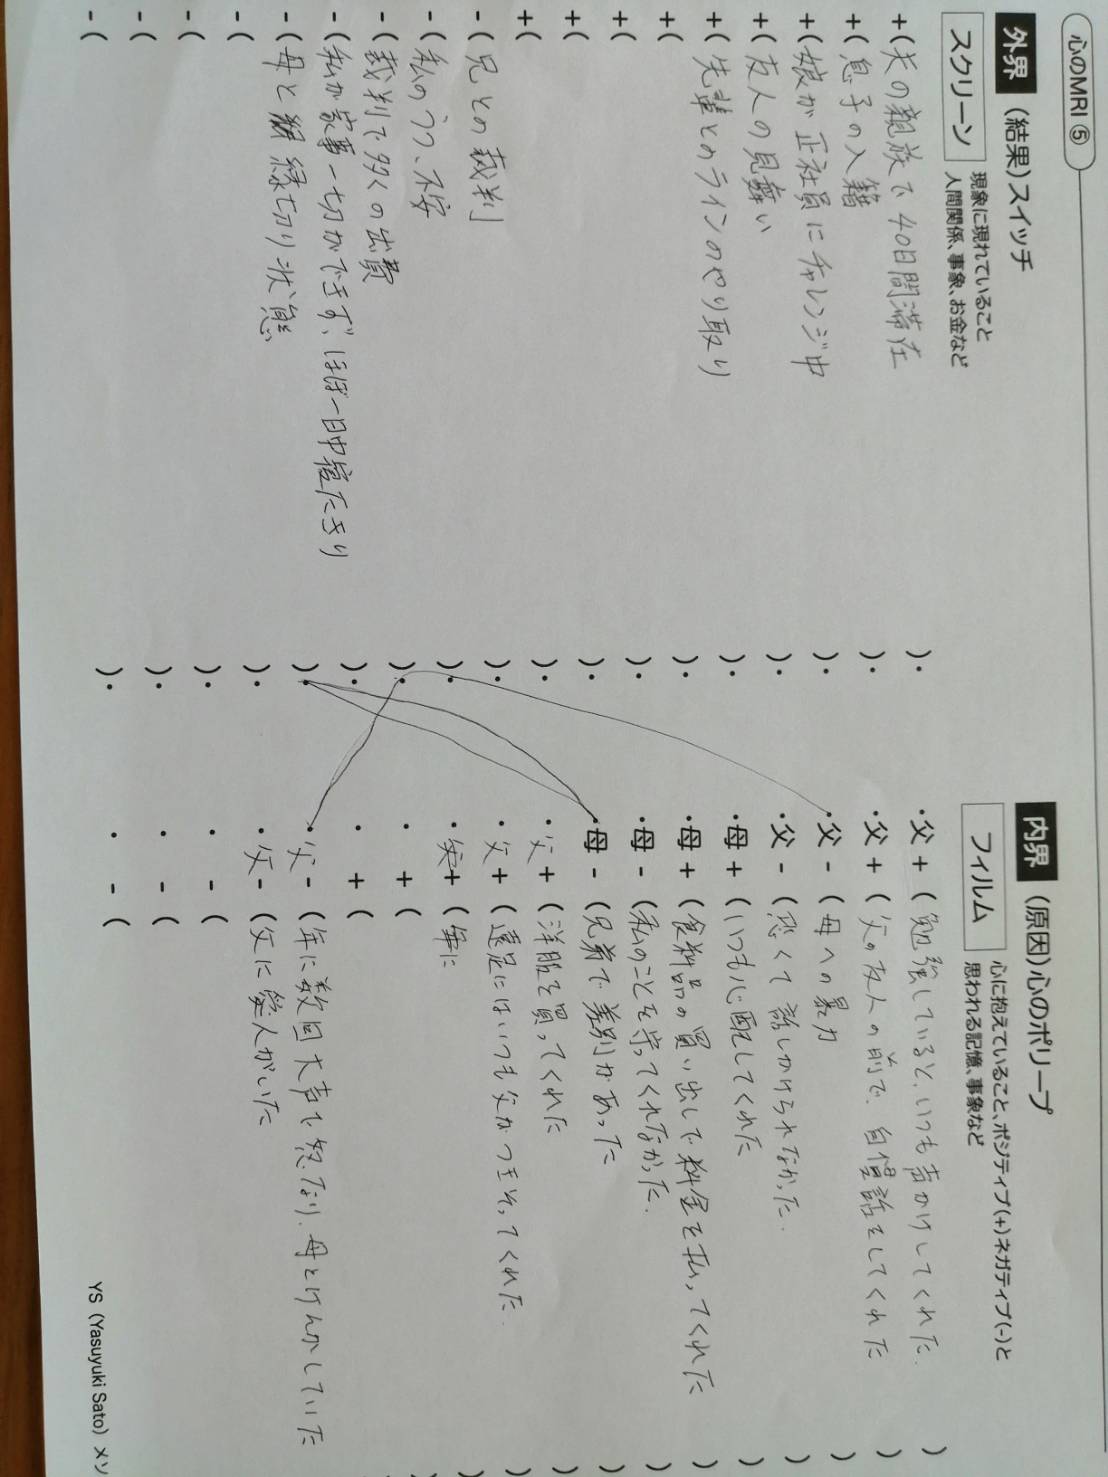 心のMRI ⑤
外界 (結果)スイッチ
スクリーン
現象に現れていること
人間関係、事象、お金など
+(夫の親族で40日間滞在 )・
+(息子の入籍 )・
+(娘が正社員にチャレンジ中 )・
+(友人の見舞い )・
+(先輩とのラインのやり取り )・
+( )・
+( )・
+( )・
+( )・
-(兄との裁判 )・
-(私のうつ、不安 )・
-(裁判で多くの出費 )・
-(私が家事一切ができず、ほぼ一日中寝たきり )・
-(母と絶縁切り状態 )・
-( )・
-( )・
-( )・
-( )・
内界 (原因)心のポリープ
フィルム
心に抱えていること、ポジティブ(+)ネガティブ(-)と
思われる記憶、事象など
・父+(勉強していると、いつも声かけしてくれた. )
・父+(父の友人の前で、自慢話をしてくれた )
・父-(母への暴力 )
・父-(恐くて話しかけられなかった. )
・母+(いつも心配してくれた )
・母+(食料品の買い出しで料金を払ってくれた )
・母-(私のことを守ってくれなかった. )
・母-(兄弟で差別があった )
・父+(洋服を買ってくれた )
・父+(遠足にはいつも父がつきそってくれた. )
・+(
・+(
・+(
・父-(年に数回大声で怒なり、母とけんかしていた
・父-(父に愛人がいた
・-(
・-(
・-(
YS (Yasuyuki Sato) メソ